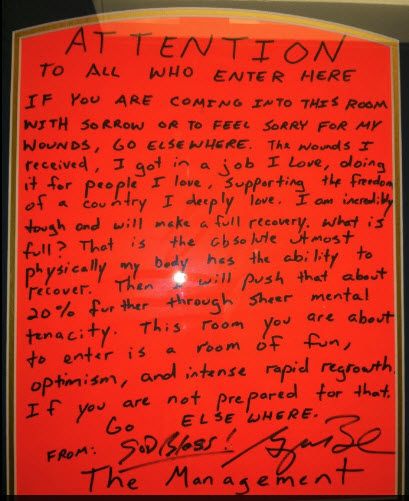 ATTENTION
TO ALL WHO ENTER HERE
IF YOU ARE COMING INTO THIS ROOM
WITH SORROW OR TO FEEL SORRY FOR MY
WOUNDS, GO ELSEWHERE. The wounds I
received, I got in a job I Love, doing
it for people I love, supporting the freedom
of a country I deeply love. I am incredibly
tough and will make a full recovery. What is
full? That is the absolute utmost
physically my body has the ability to
recover. Then I will push that about
20% further through sheer mental
tenacity. This room you are about
to enter is a room of fun,
optimism, and intense rapid regrowth.
If you are not prepared for that,
Go ELSEWHERE.
FROM: GOD Bless!
The Management